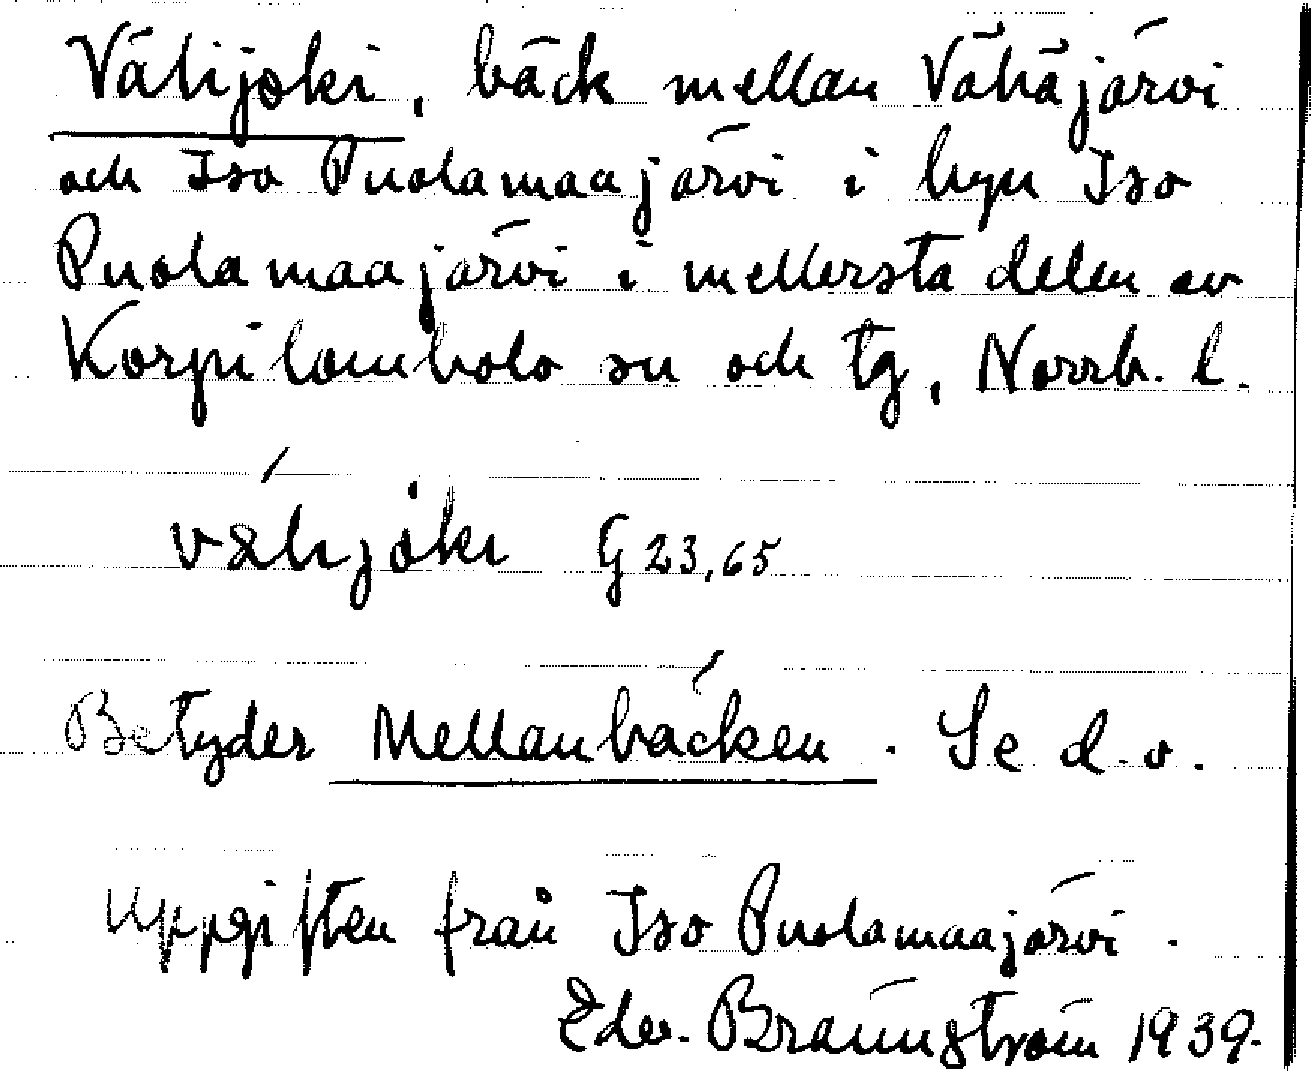 Välijoki, bäck mellan Vähäjärvi
och Iso Puolamaajärvi i byn Iso
Puolamaajärvi i mellersta delen av
Korpilombolo sn och tg, Norrb. l.
välijoki G 23,65
Betyder Mellanbäcken. Se d.o.
Uppgiften från Iso Puolamaajärvi.
Edv. Brännström 1939.